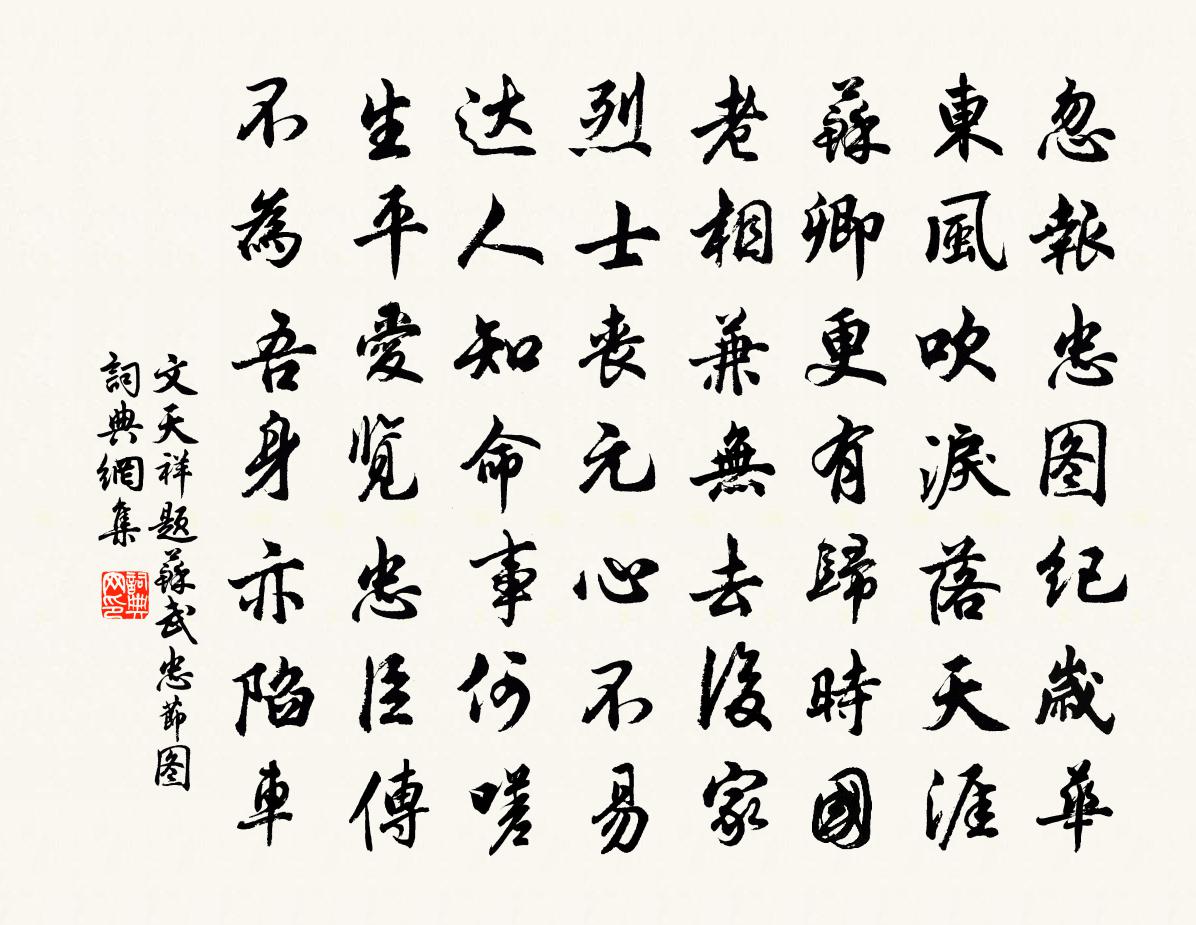 忽報忠图纪歲華
東風吹淚落天涯
蘇卿更有歸時國
老相兼無去後家
烈士丧元心不易
达人知命事何嗟
生平愛览忠臣傳
不為吾身亦陷車
文天祥题蘇武忠節图
詞典網集
詞典网印